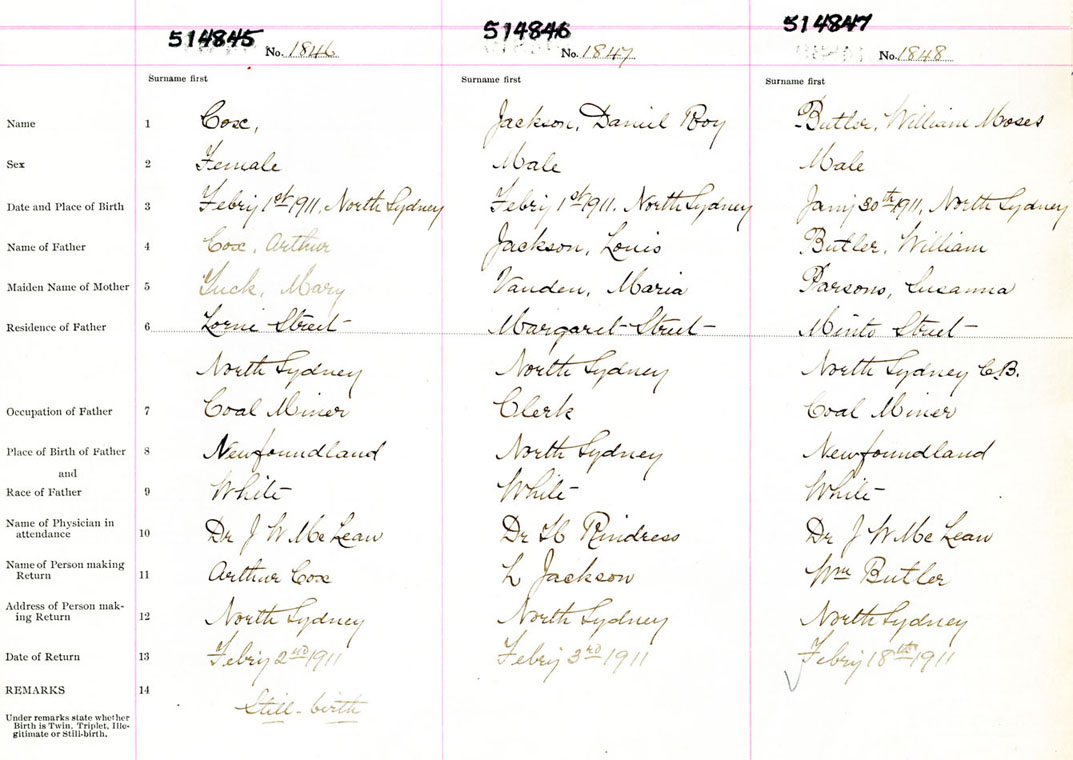 514845 514846 514847
No. 1846 No. 1847 No. 1848
Surname first Surname first Surname first
Name 1 Coxe, Jackson, Daniel Roy Butler, William Moses
Sex 2 Female Male Male
Date and Place of Birth 3 Febry 1st 1911, North Sydney Febry 1st 1911, North Sydney Jany 30th 1911, North Sydney
Name of Father 4 Coxe, Arthur Jackson, Louis Butler, William
Maiden Name of Mother 5 Mary Vanden, Maria Parsons, Susanna
Residence of Father 6 Lorne Street Margaret Street Minto Street
North Sydney North Sydney North Sydney C.B.
Occupation of Father 7 Coal Miner Clerk Coal Miner
Place of Birth of Father 8 Newfoundland North Sydney Newfoundland
and
Race of Father 9 White White White
Name of Physician in
attendance 10 Dr J W McLean Dr H Rindress Dr J W McLean
Name of Person making
Return 11 Arthur Coxe L Jackson Wm Butler
Address of Person mak-
ing Return 12 North Sydney North Sydney North Sydney
Date of Return 13 Febry 2nd 1911 Febry 3rd 1911 Febry 18th 1911
REMARKS 14
Still-birth
Under remarks state whether
Birth is Twin, Triplet, Ille-
gitimate or Still-birth.